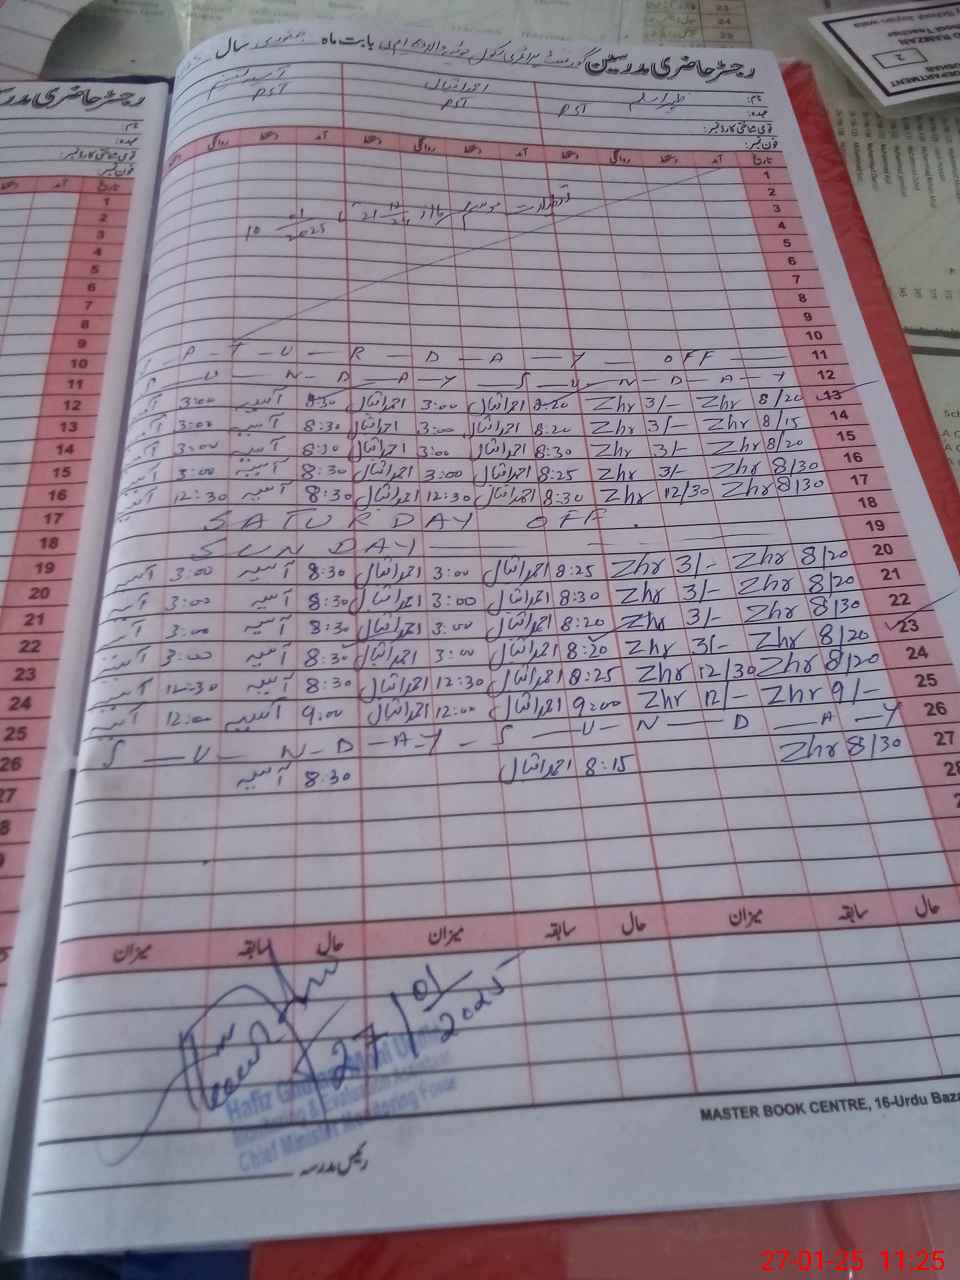 رجسٹر حاضری مدرسین گورنمنٹ پرائمری سکول بابت ماہ جنوری سال
نام:
ظہیر اسلم احمد اقبال آسیہ
عہدہ:
PST PST PST
قومی شناختی کارڈ نمبر:
فون نمبر:
تاریخ آمد دستخط روانگی دستخط آمد دستخط روانگی دستخط آمد دستخط روانگی
1
2
3
تعطیلات موسم سرما 21 12/24 تا 10 01/2025
4
5
6
7
8
9
10
11 S-A-T-U-R-D-A-Y OFF
12 S-U-N-D-A-Y-S-U-N-D-A-Y
13 8/20 Zhr 3/- Zhr 8:20 احمد اقبال 3:00 احمد اقبال 8:30 آسیہ 3:00 آسیہ
14 8/15 Zhr 3/- Zhr 8:20 احمد اقبال 3:00 احمد اقبال 8:30 آسیہ 3:00 آسیہ
15 8/20 Zhr 3/- Zhr 8:30 احمد اقبال 3:00 احمد اقبال 8:30 آسیہ 3:00 آسیہ
16 8/30 Zhr 3/- Zhr 8:25 احمد اقبال 3:00 احمد اقبال 8:30 آسیہ 3:00 آسیہ
17 8/30 Zhr 12/30 Zhr 8:30 احمد اقبال 12:30 احمد اقبال 8:30 آسیہ 12:30 آسیہ
18 SATURDAY OFF.
19 SUNDAY
20 8/20 Zhr 3/- Zhr 8:25 احمد اقبال 3:00 احمد اقبال 8:30 آسیہ 3:00 آسیہ
21 8/20 Zhr 3/- Zhr 8:30 احمد اقبال 3:00 احمد اقبال 8:30 آسیہ 3:00 آسیہ
22 8/30 Zhr 3/- Zhr 8:20 احمد اقبال 3:00 احمد اقبال 8:30 آسیہ 3:00 آسیہ
23 8/20 Zhr 3/- Zhr 8:20 احمد اقبال 3:00 احمد اقبال 8:30 آسیہ 3:00 آسیہ
24 8/20 Zhr 12/30 Zhr 8:25 احمد اقبال 12:30 احمد اقبال 8:30 آسیہ 12:30 آسیہ
25 9/- Zhr 12/- Zhr 9:00 احمد اقبال 12:00 احمد اقبال 9:00 آسیہ 12:00 آسیہ
26 S-U-N-D-A-Y-S-U-N-D-A-Y
27 8/30 Zhr 8:15 احمد اقبال 8:30 آسیہ
28
حال سابقہ میزان حال سابقہ میزان حال سابقہ میزان
27/01/2025
Hafiz
Monitoring & Evaluation Assistant
Chief Minister Monitoring Force
رئیس مدرسہ
MASTER BOOK CENTRE, 16-Urdu Baza
رجسٹر حاضری مدرسین
نام:
عہدہ:
قومی شناختی کارڈ نمبر:
فون نمبر:
تاریخ آمد دستخط
1
2
3
4
5
6
7
8
9
10
11
12
13
14
15
16
17
18
19
20
21
22
23
24
25
26
27
RAMZAN
Teacher
DEPARTMENT
2
27-01-25 11:25